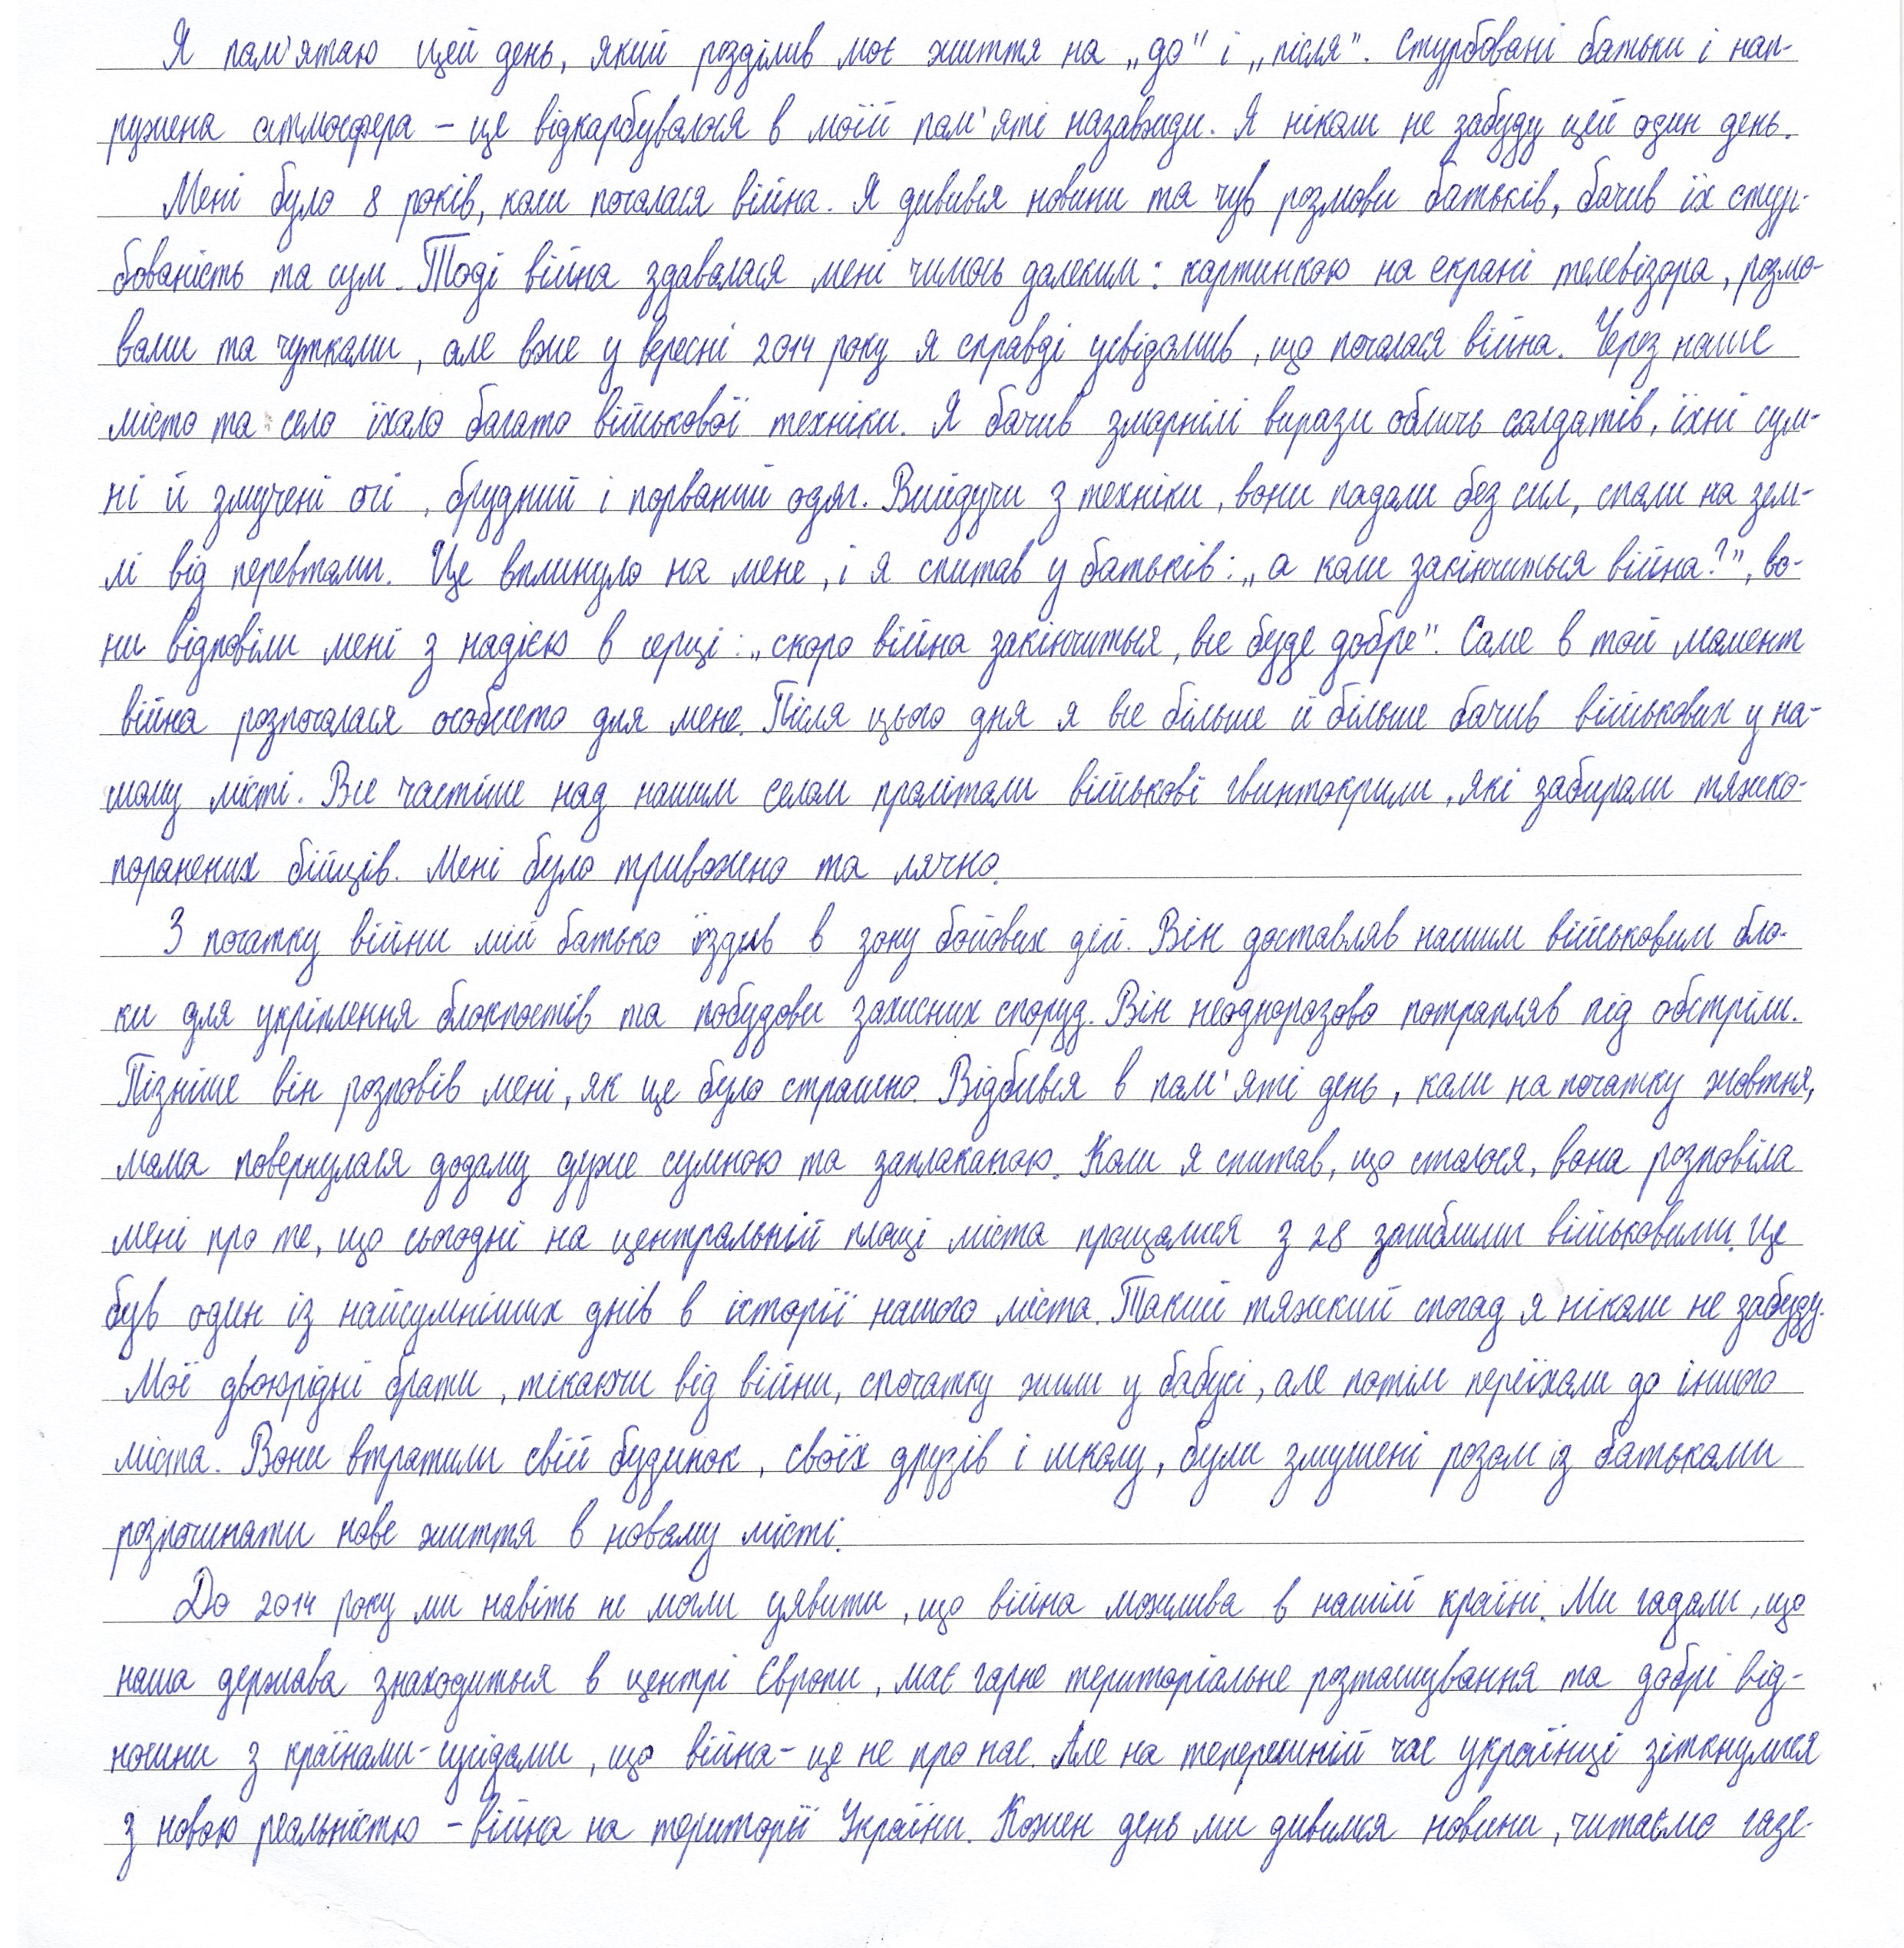 Я пам'ятаю цей день, який розділив моє життя на „до" і „після". Стурбовані батьки і нап-
ружена атмосфера – це відкарбувалося в моїй пам'яті назавжди. Я ніколи не забуду цей один день.
Мені було 8 років, коли почалася війна. Я дивився новини та чув розмови батьків, бачив їх стур-
бованість та сум. Тоді війна здавалася мені чимось далеким: картинкою на екрані телевізора, розмо-
вами та чутками, але вже у вересні 2014 року я справді усвідомив, що почалася війна. Через наше
місто та село їхало багато військової техніки. Я бачив змарнілі вирази облич солдатів, їхні сум-
ні й змучені очі, брудний і порваний одяг. Вийдучи з техніки, вони падали без сил, спали на зем-
лі від перевтоми. Це вплинуло на мене, і я спитав у батьків: „а коли закінчиться війна?", во-
ни відповіли мені з надією в серці: „скоро війна закінчиться, все буде добре". Саме в той момент
війна розпочалася особисто для мене. Після цього дня я все більше й більше бачив військових у на-
шому місті. Все частіше над нашим селом пролітали військові гвинтокрили, які забирали тяжко-
поранених бійців. Мені було тривожно та лячно.
З початку війни мій батько їздив в зону бойових дій. Він доставляв нашим військовим бло-
ки для укріплення блокпостів та побудови захисних споруд. Він неодноразово потрапляв під обстріли.
Пізніше він розповів мені, як це було страшно. Відбився в пам'яті день, коли на початку жовтня,
мама повернулася додому дуже сумною та заплаканою. Коли я спитав, що сталося, вона розповіла
мені про те, що сьогодні на центральній площі міста прощалися з 28 загиблими військовими. Це
був один із найсумніших днів в історії нашого міста. Такий тяжкий спогад я ніколи не забуду.
Мої двоюрідні брати, тікаючи від війни, спочатку жили у бабусі, але потім переїхали до іншого
міста. Вони втратили свій будинок, своїх друзів і школу, були змушені разом із батьками
розпочинати нове життя в новому місті.
До 2014 року ми навіть не могли уявити, що війна можлива в нашій країні. Ми гадали, що
наша держава знаходиться в центрі Європи, має гарне територіальне розташування та добрі від-
носини з країнами-сусідами, що війна – це не про нас. Але на теперешній час українці зіткнулися
з новою реальністю – війна на території України. Кожен день ми дивимся новини, читаємо газе-